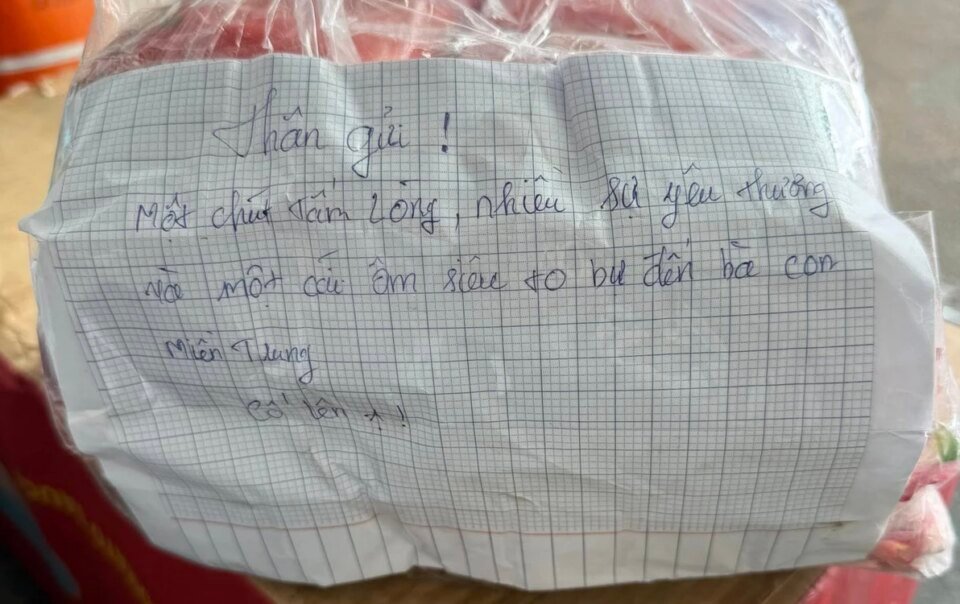 Thân gửi !
Một chút tấm lòng, nhiều sự yêu thương
và một cái ôm siêu to bự đến bà con
Miền Trung
Cố lên * !